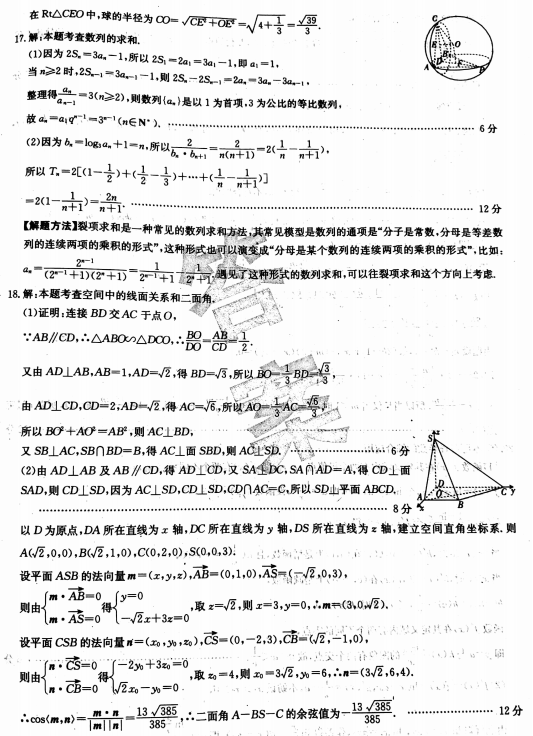 在 Rt△CEO 中,球的半径为 CO=√(CE²+OE²)=√(4+1/3)=√39/3.
17.解:本题考查数列的求和.
(1)因为 2Sₙ=3aₙ-1,所以 2S₁=2a₁=3a₁-1,即 a₁=1,
当 n≥2 时,2Sₙ₋₁=3aₙ₋₁-1,则 2Sₙ-2Sₙ₋₁=2aₙ=3aₙ-3aₙ₋₁,
整理得 aₙ/aₙ₋₁=3(n≥2),则数列{aₙ}是以 1 为首项,3 为公比的等比数列,
故 aₙ=a₁qⁿ⁻¹=3ⁿ⁻¹(n∈N*). …… 6 分
(2)因为 bₙ=log₃aₙ+1=n,所以 2/(bₙ·bₙ₊₁)=2/(n(n+1))=2(1/n-1/(n+1)),
所以 Tₙ=2[(1-1/2)+(1/2-1/3)+…+(1/n-1/(n+1))]
=2(1-1/(n+1))=2n/(n+1). …… 12 分
【解题方法】裂项求和是一种常见的数列求和方法,其常见模型是数列的通项是“分子是常数,分母是等差数
列的连续两项的乘积的形式”,这种形式也可以演变成“分母是某个数列的连续两项的乘积的形式”,比如:
aₙ=2ⁿ⁻¹/((2ⁿ⁻¹+1)(2ⁿ+1))=1/(2ⁿ⁻¹+1)-1/(2ⁿ+1),遇见了这种形式的数列求和,可以往裂项求和这个方向上考虑.
18.解:本题考查空间中的线面关系和二面角.
(1)证明:连接 BD 交 AC 于点 O,
∵AB∥CD,∴△ABO∽△DCO,∴BO/DO=AB/CD=1/2.
又由 AD⊥AB,AB=1,AD=√2,得 BD=√3,所以 BO=1/3BD=√3/3,
由 AD⊥CD,CD=2,AD=√2,得 AC=√6,所以 AO=1/3AC=√6/3,
所以 BO²+AO²=AB²,则 AC⊥BD,
又 SB⊥AC,SB∩BD=B,得 AC⊥面 SBD,则 AC⊥SD. …… 6 分
(2)由 AD⊥AB 及 AB∥CD,得 AD⊥CD,又 SA⊥DC,SA∩AD=A,得 CD⊥面
SAD,则 CD⊥SD,因为 AC⊥SD,CD⊥SD,CD∩AC=C,所以 SD⊥平面 ABCD.
…… 8 分
以 D 为原点,DA 所在直线为 x 轴,DC 所在直线为 y 轴,DS 所在直线为 z 轴,建立空间直角坐标系.则
A(√2,0,0),B(√2,1,0),C(0,2,0),S(0,0,3).
设平面 ASB 的法向量 m=(x,y,z),AB=(0,1,0),AS=(-√2,0,3),
则由{m·AB=0 m·AS=0 得{y=0 -√2x+3z=0,取 z=√2,则 x=3,y=0,∴m=(3,0,√2).
设平面 CSB 的法向量 n=(x₀,y₀,z₀),CS=(0,-2,3),CB=(√2,-1,0),
则由{n·CS=0 n·CB=0 得{-2y₀+3z₀=0 √2x₀-y₀=0.,取 z₀=4,则 x₀=3√2,y₀=6,∴n=(3√2,6,4).
∴cos⟨m,n⟩=m·n/|m||n|=13√385/385,∴二面角 A-BS-C 的余弦值为-13√385/385. …… 12 分